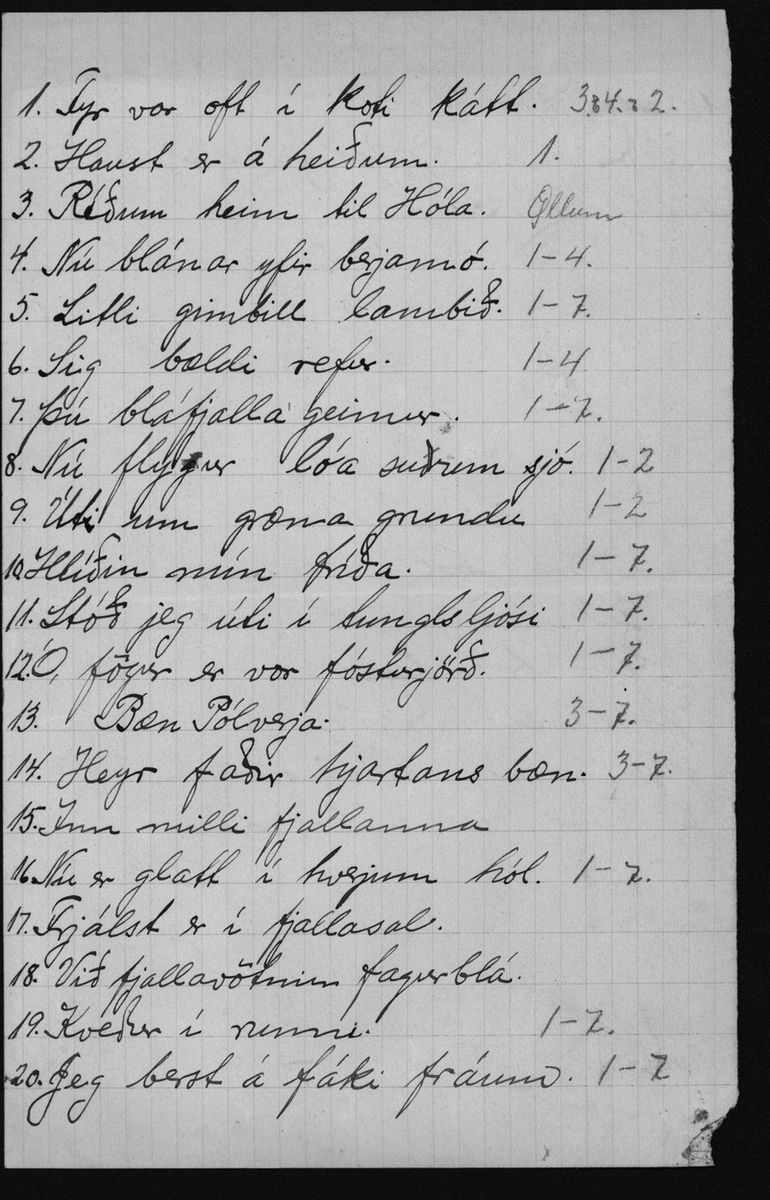 1. Fyr var oft í koti kátt. 3.og 4. og 2.
2. Haust er á heiðum. 1.
3. Ríðum heim til Hóla. Öllum
4. Nú blánar yfir berjamó. 1-4.
5. Litli gimbill lambið. 1-7.
6. Sig bældi refur. 1-4
7. Þú bláfjalla geimur. 1-7.
8. Nú flýgur lóa suðrum sjó. 1-2
9. Úti um græna grundu 1-2
10. Hlíðin mín fríða. 1-7.
11. Stóð jeg úti í tunglsljósi 1-7.
12. Ó, fögur er vor fósturjörð. 1-7.
13. Bæn Pólverja. 3-7.
14. Heyr faðir hjartans bæn. 3-7.
15. Inn milli fjallanna
16. Nú er glatt í hverjum hól. 1-7.
17. Frjálst er í fjallasal.
18. Við fjallavötnin fagurblá.
19. Kveður í runni. 1-7.
20. Jeg berst á fáki fráum. 1-7